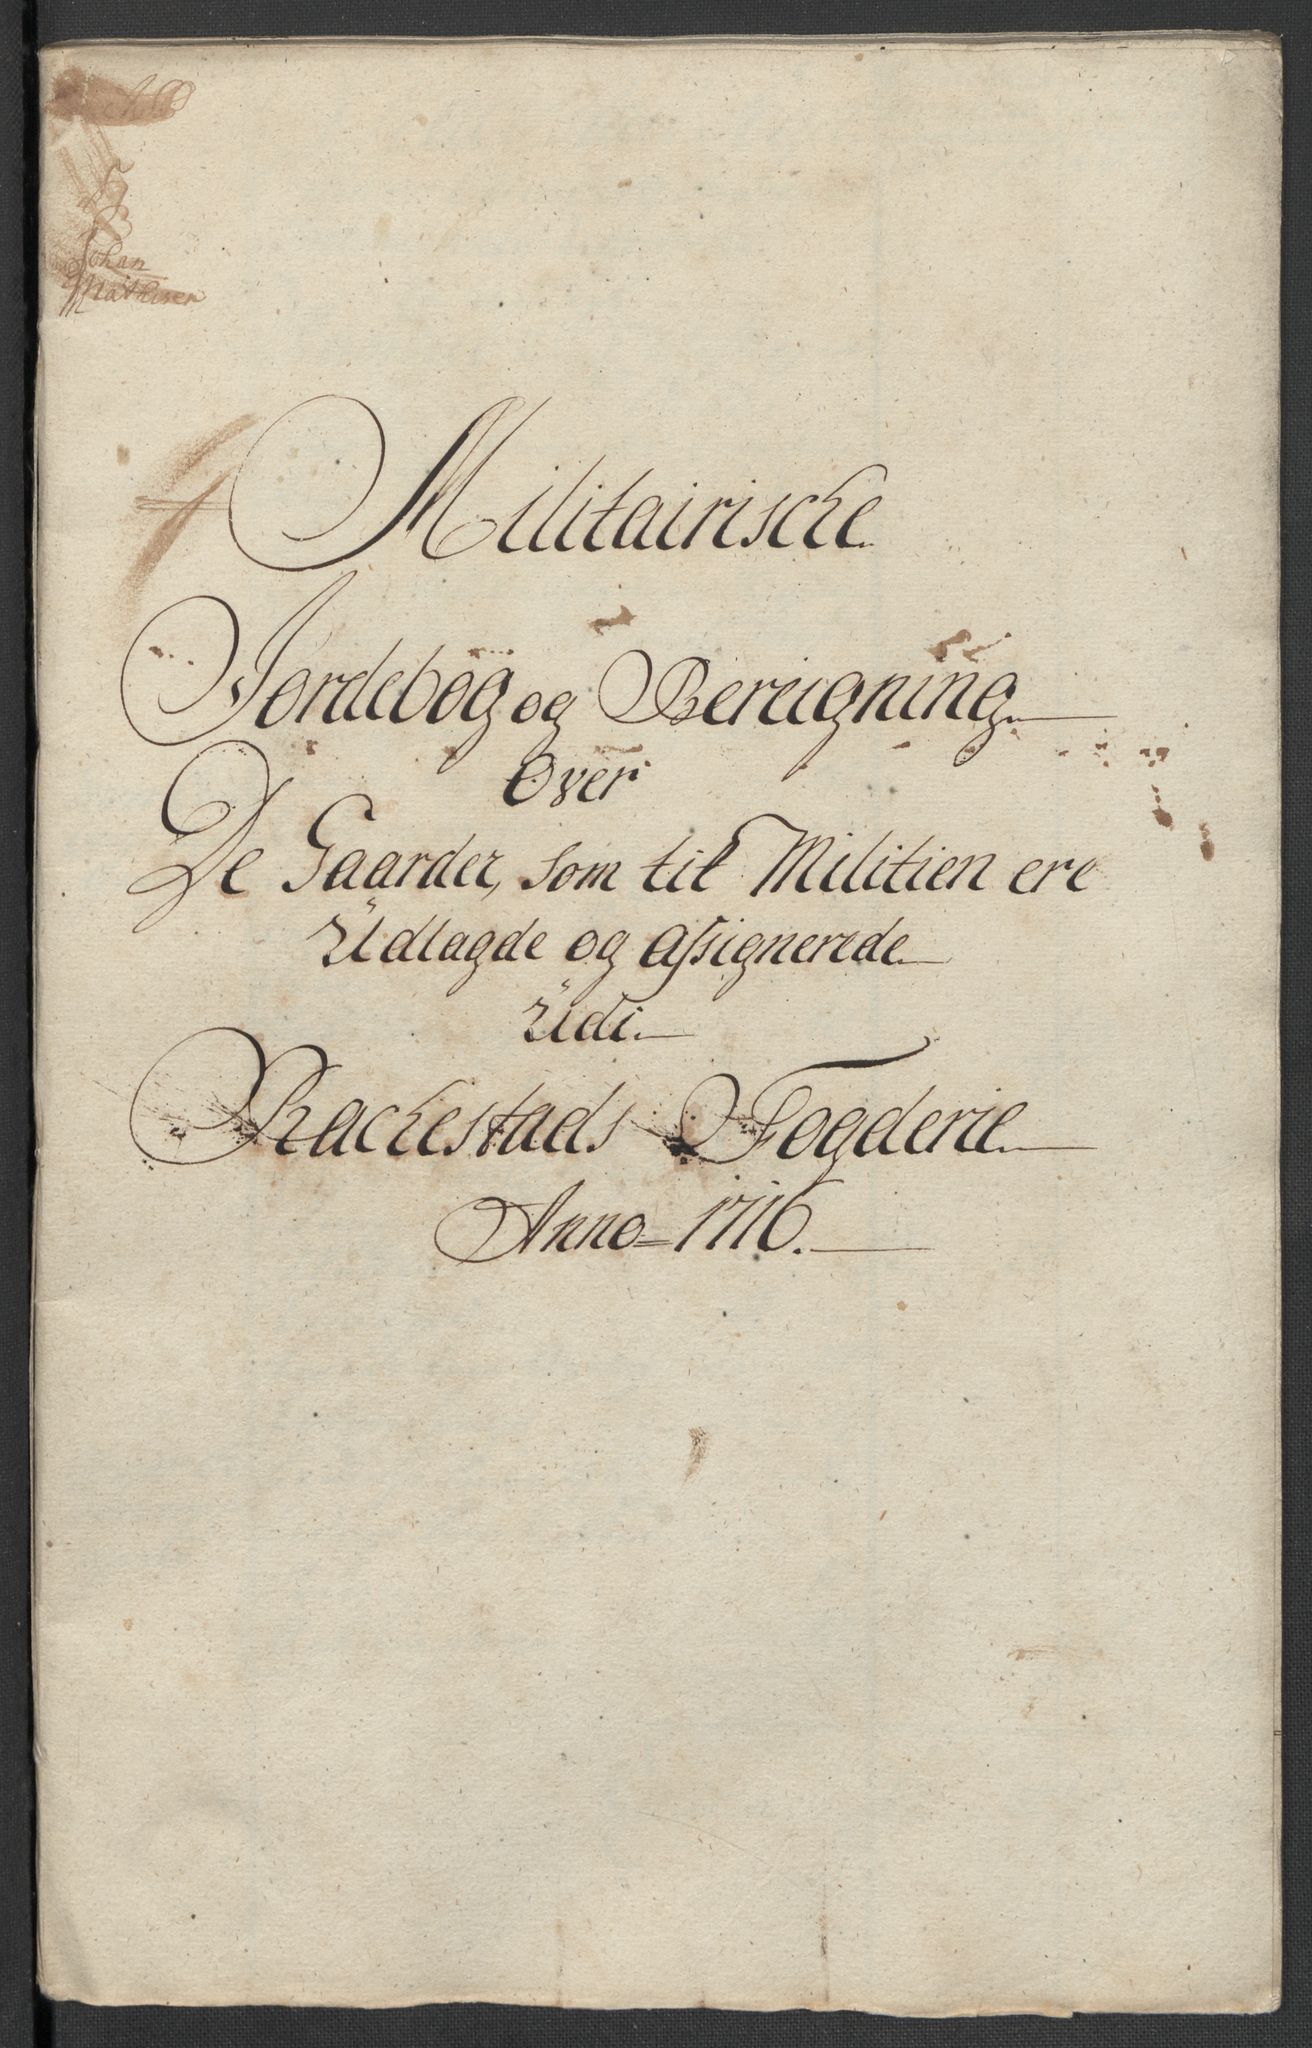 Johan
Mathisen
Militairische
Jordebog og Bereigning
Over
De Gaarder, som til Militien ere
Udlagde og assignerede
Udi
Rackestads Fogderie
Anno 1716.